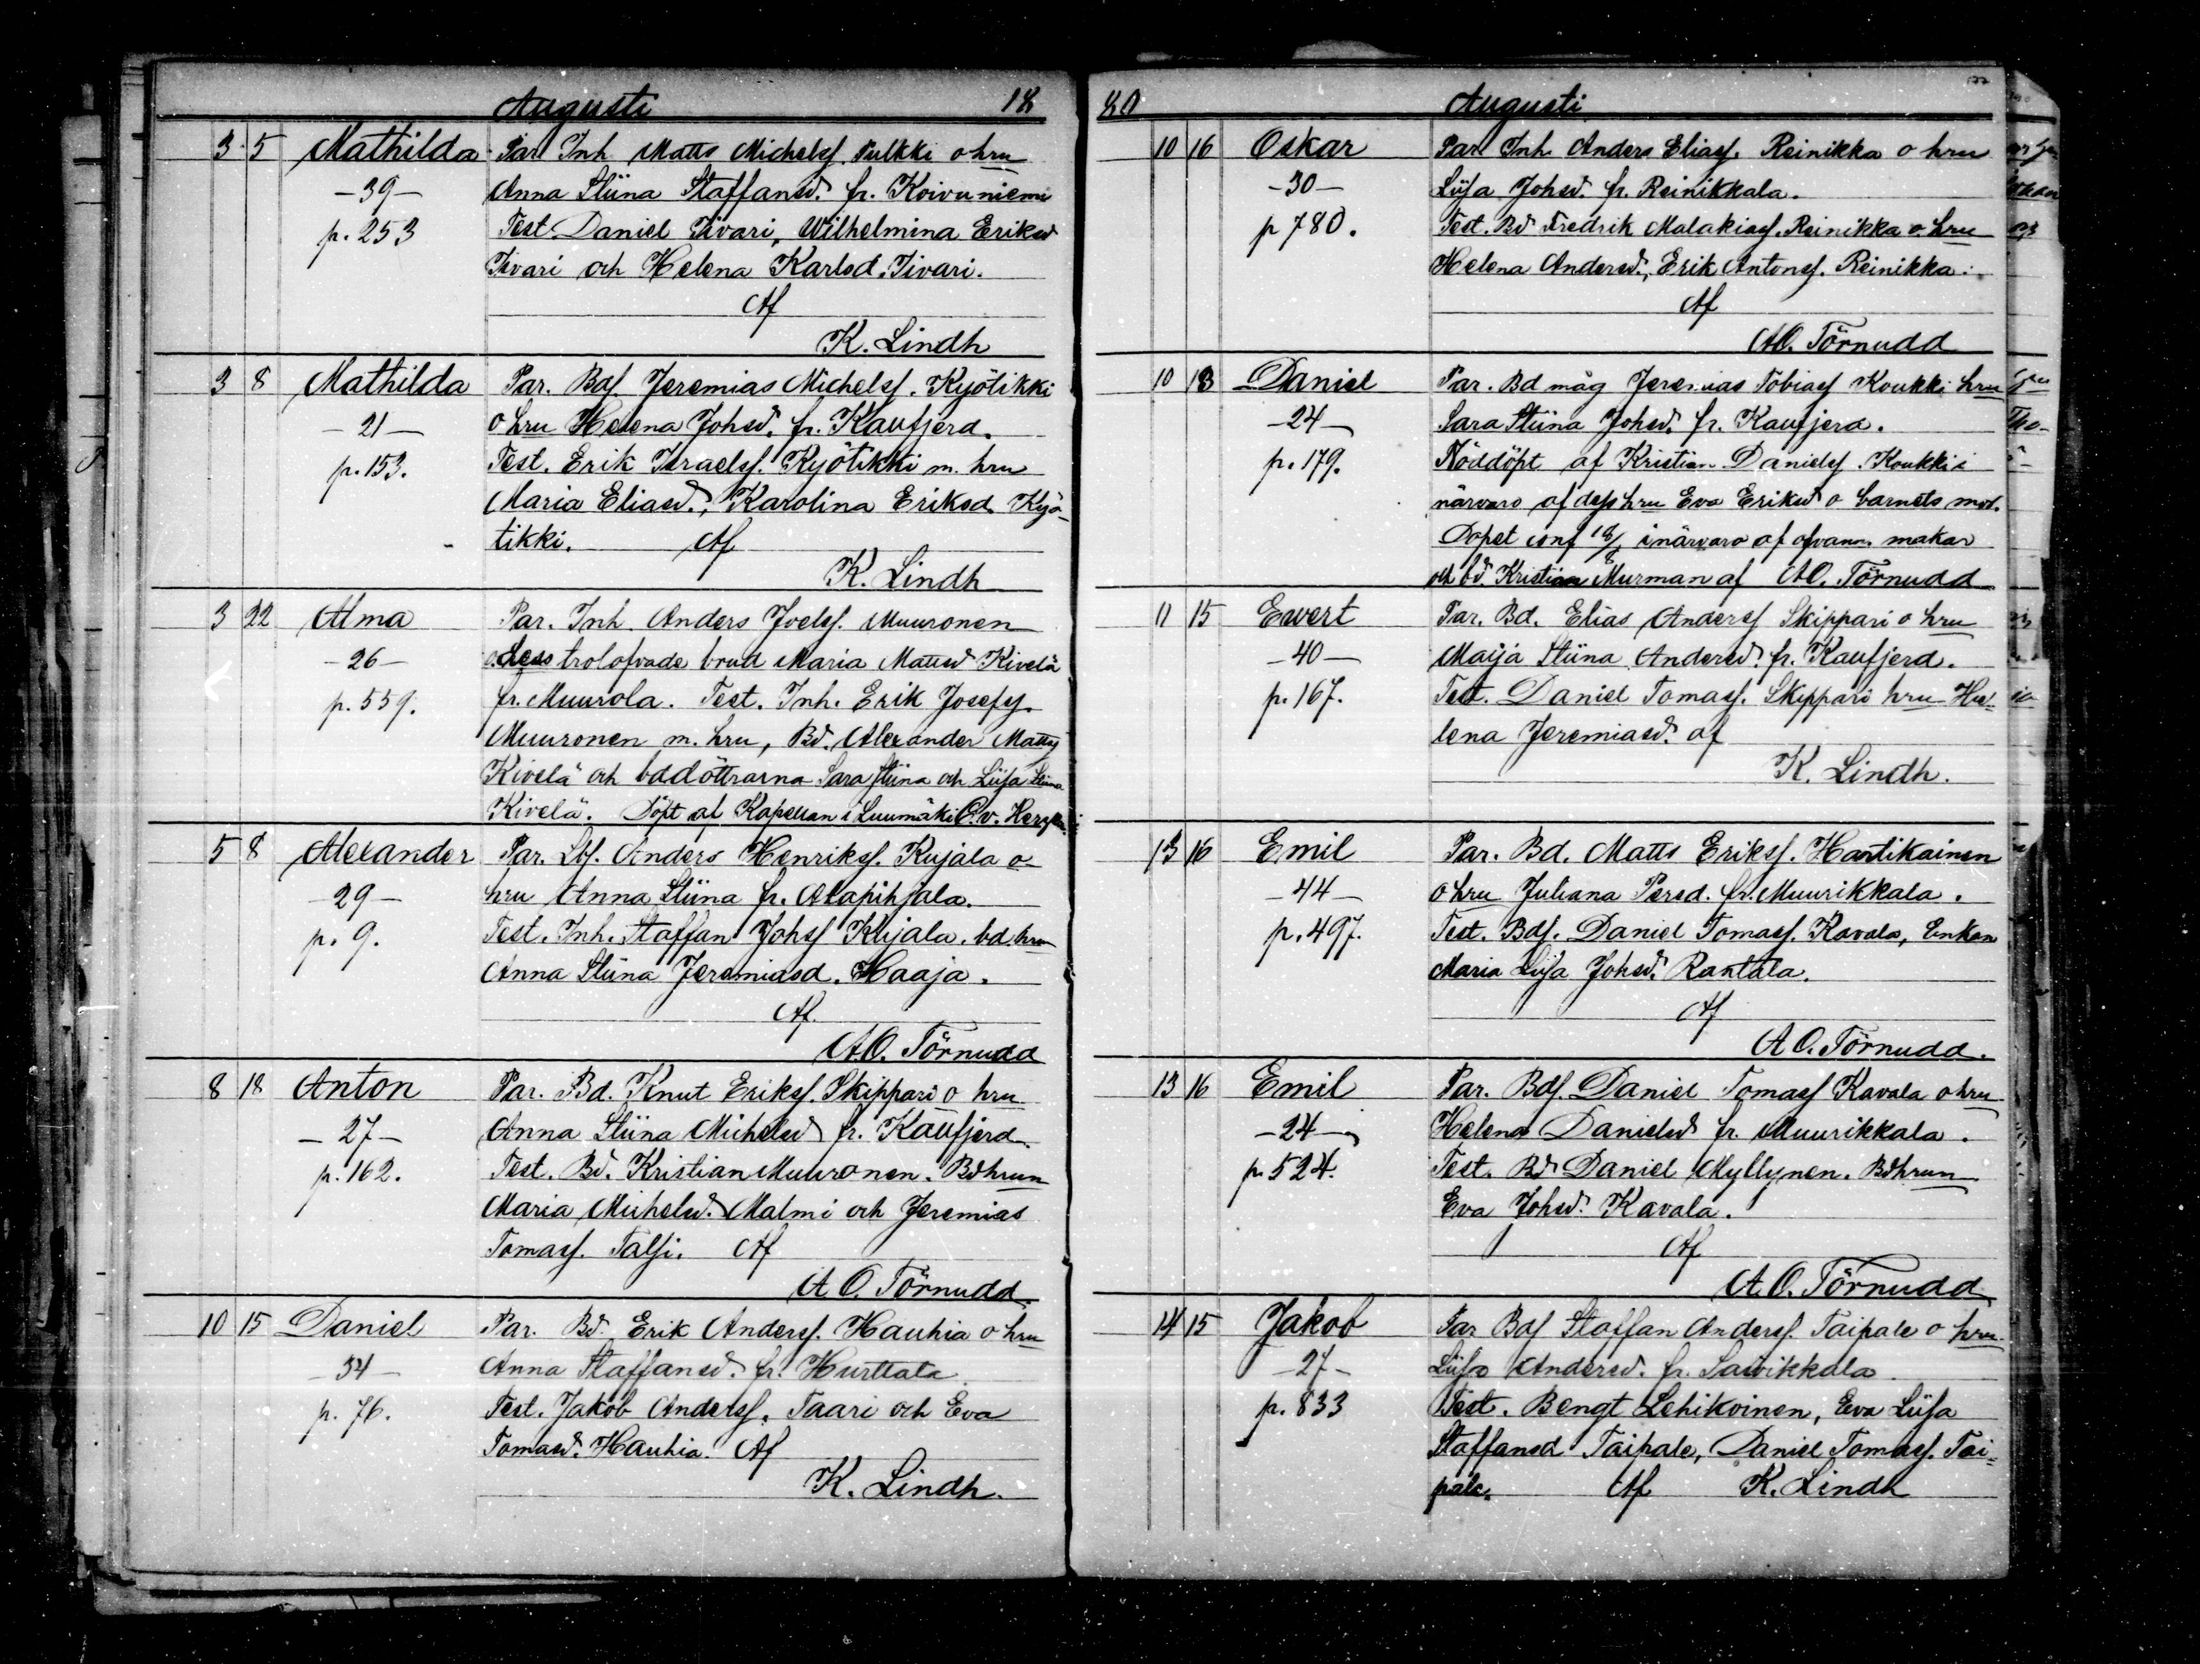 Augusti 18
3 5 Mathilda Par Inh Matts Michelss. Pulkki o hru
-39- Anna Stiina Staffansd. fr. Koivuniemi
p. 253 Test Daniel Tivari, Wilhelmina Eriksd
Tivari och Helena Karlsd. Tivari.
Af
K. Lindh
3 8 Mathilda Par. Bds. Jeremias Michelss. Kyötikki
-21- o hru Helena Johsd. fr. Kaufjerd.
p. 153. Test. Erik Israelss. Kyötikki m. hru
Maria Eliasd., Karolina Eriksd. Kyö-
tikki. Af
K. Lindh
3 22 Alma Par. Inh. Anders Joelss. Muuronen
-26- o. dess trolofvade brud Maria Mattsd Kivelä
p. 559. fr. Muurola. Test. Inh. Erik Josefss.
Muuronen m. hru, Bd. Alexander Mattss
Kivelä och bddöttrarna Sara Stiina och Liisa Stiina
Kivelä. Döpt af Kapellan i Luumäki
5 8 Alexander Par. Lbf. Anders Henrikss. Kujala o
-29- hru Anna Stiina fr. Alapihjala.
p. 9. Test. Inh. Staffan Johss Kujala. bd.hrun
Anna Stiina Jeremiasd. Haaja.
Af.
A.O. Törnudd
8 18 Anton Par. Bd. Knut Erikss. Skippari o hru
-27- Anna Stiina Michelsd fr. Kaufjerd.
p. 162. Test. Bd. Kristian Muuronen. Bdhrun
Maria Michelsd. Malmi och Jeremias
Tomass. Talsi. Af
A O. Törnudd.
10 15 Daniel Par. Bd. Erik Anderss. Hauhia o hru
-34- Anna Staffansd. fr. Hurttala
p. 76. Test. Jakob Anderss. Taari och Eva
Tomasd. Hauhia. Af
K. Lindh.
80 Augusti
10 16 Oskar Par Inh. Anders Eliass. Reinikka o hru
-30- Liisa Johsd. fr. Reinikkala.
p 780. Test. Bd Fredrik Malakiass. Reinikka o. hru
Helena Andersd., Erik Antonss. Reinikka.
Af
A.O. Törnudd
10 18 Daniel Par. Bd måg Jeremias Tobiass Koukki hru
-24- Sara Stiina Johsd. fr. Kaufjerd.
p. 179. Nöddöpt af Kristian Danielss. Koukki i
närvaro af dess hru Eva Eriksd o barnets mod.
Dopet conf 18/8 i närvaro af ofvann. makar
och bd. Kristian Murman af A.O. Törnudd
11 15 Ewert Par. Bd. Elias Anderss Skippari o hru
-40- Maija Stiina Andersd. fr. Kaufjerd.
p. 167. Test. Daniel Tomass. Skippari hru He-
lena Jeremiasd. af
K. Lindh.
13 16 Emil Par. Bd. Matts Erikss. Hartikainen
-44- o hru Juliana Persd. fr. Muurikkala.
p. 497. Test. Bds. Daniel Tomass. Kavala, Enkan
Maria Liisa Johsd. Rantala.
Af
A O. Törnudd.
13 16 Emil Par. Bds. Daniel Tomass Kavala o hru
-24- Helena Danielsd fr. Muurikkala.
p. 524. Test. Bd Daniel Myllynen. Bdhrun
Eva Johsd. Kavala.
Af
A.O. Törnudd
14 15 Jakob Par Bds Staffan Anderss. Taipale o hru
-27- Liisa Andersd. fr. Saivikkala
p. 833 Test. Bengt Lehikoinen, Eva Liisa
Staffansd Taipale, Daniel Tomass. Tai-
pale. Af K. Lindh